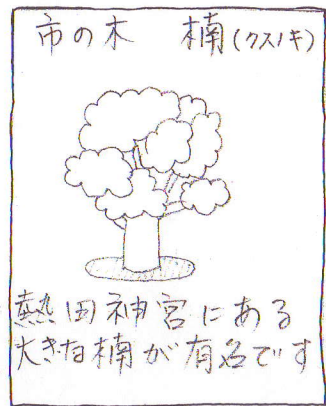 市の木 楠(クスノキ)
熱田神宮にある
大きな楠が有名です